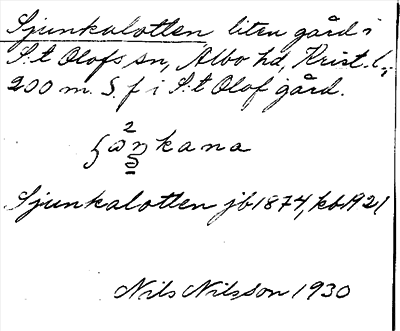 Sjunkalotten liten gård i
S:t Olofs sn, Albo hd, Krist. l.,
200 m. S. f i S:t Olof gård.
kana
Sjunkalotten jb 1874, kb 1921
Nils Nilsson 1930